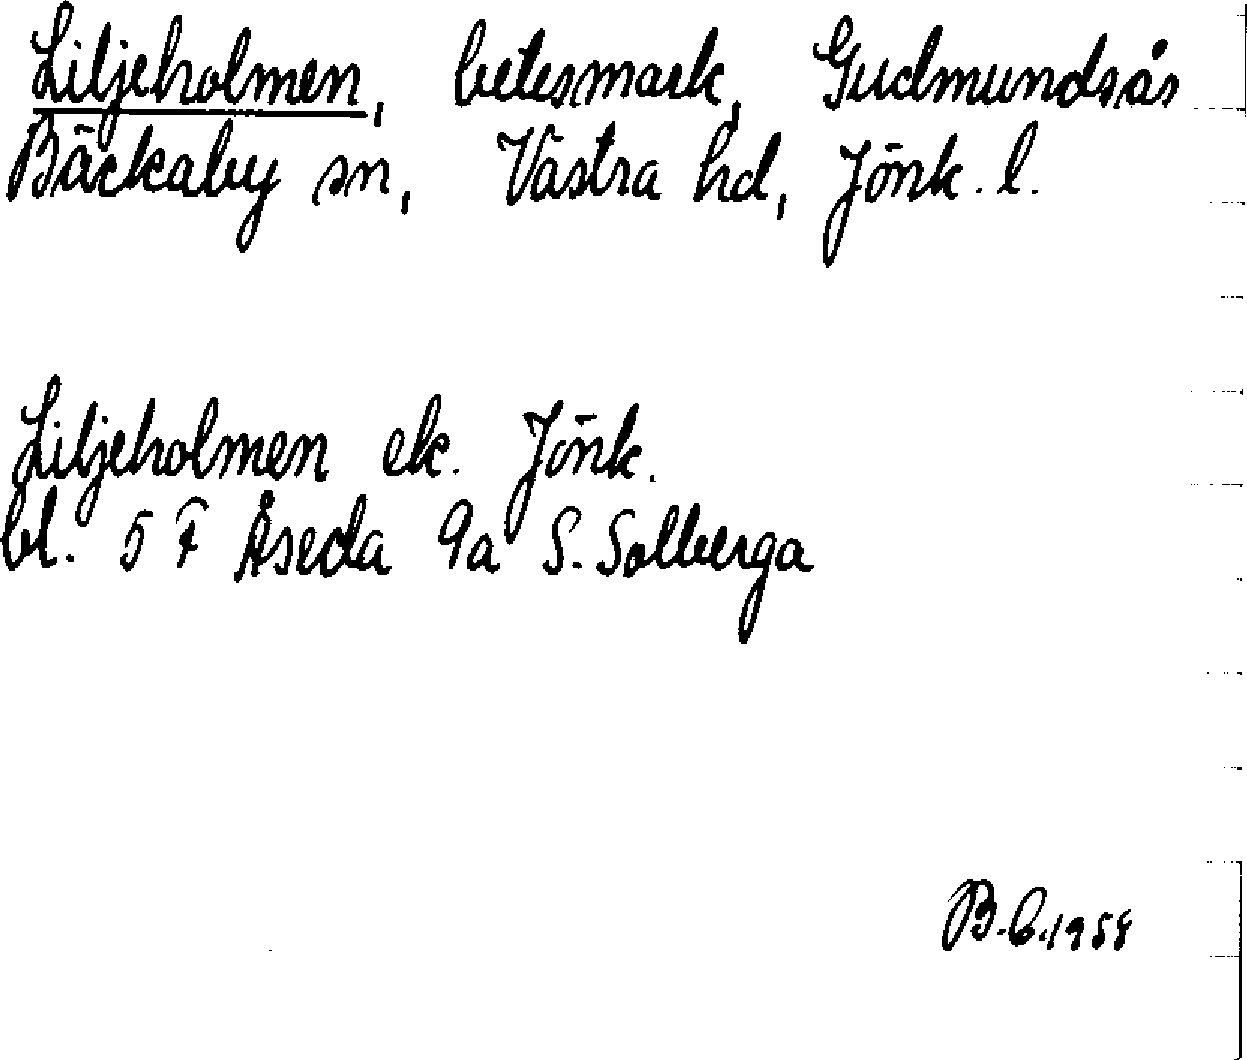 Liljeholmen, betesmark, Gudmundsås
Bäckaby sn, Västra hd, Jönk. l.
Liljeholmen ek. Jönk.
bl. 5 F Åseda 9a S. Solberga
B.C.1958